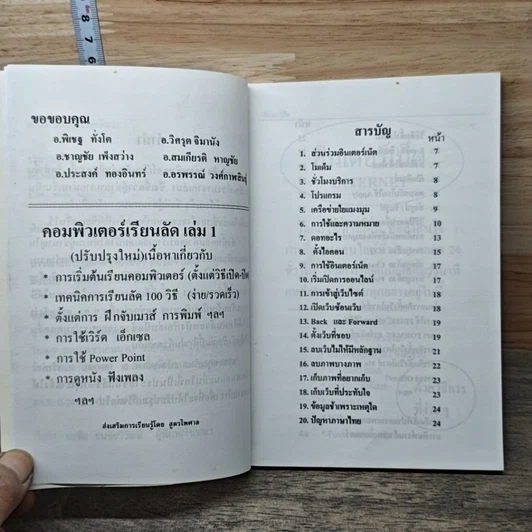 8 7 6
ขอขอบคุณ
อ.พิเชฐ ทั่งโต อ.วิศรุต จิมานัง
อ.ชาญชัย เพ็งสว่าง อ.สมเกียรติ หาญชัย
อ.ประสงค์ ทองอินทร์ อ.อรพรรณ
คอมพิวเตอร์เรียนลัด เล่ม 1
(ปรับปรุงใหม่)เนื้อหาเกี่ยวกับ
* การเริ่มต้นเรียนคอมพิวเตอร์ (ตั้งแต่วิธีเปิด-ปิด
* เทคนิคการเรียนลัด 100 วิธี (ง่าย/รวดเร็ว)
* ตั้งแต่การ ฝึกจับเมาส์ การพิมพ์ ฯลฯ
* การใช้เวิร์ด เอ็กเซล
* การใช้ Power Point
* การดูหนัง ฟังเพลง
ฯลฯ
ส่งเสริมการเรียนรู้โดย สูตรไพศาล
สารบัญ
หน้า
1. ส่วนร่วมอินเตอร์เน็ต 7
2. โมเด็ม 7
3. ชั่วโมงบริการ 8
4. โปรแกรม 8
5. เครือข่ายใยแมงมุม 9
6. การใช้และความหมาย 10
7. ดอทอะไร 13
8. ตั้งไอคอน 15
9. การใช้อินเตอร์เน็ต 15
10. เริ่มเปิดการออนไลน์ 16
11. การเข้าสู่เว็บไซต์ 18
12. เปิดเวบซ้อนเวบ 18
13. Back และ Forward 18
14. ตั้งเว็บที่ชอบ 19
15. ลบเว็บไม่ให้มีหลักฐาน 21
16. ลบภาพบางภาพ 22
17. เก็บภาพที่อยากเก็บ 23
18. เก็บเว็บที่ประทับใจ 23
19. ข้อมูลช้าเพราะเหตุใด 24
20. ปัญหาภาษาไทย 24